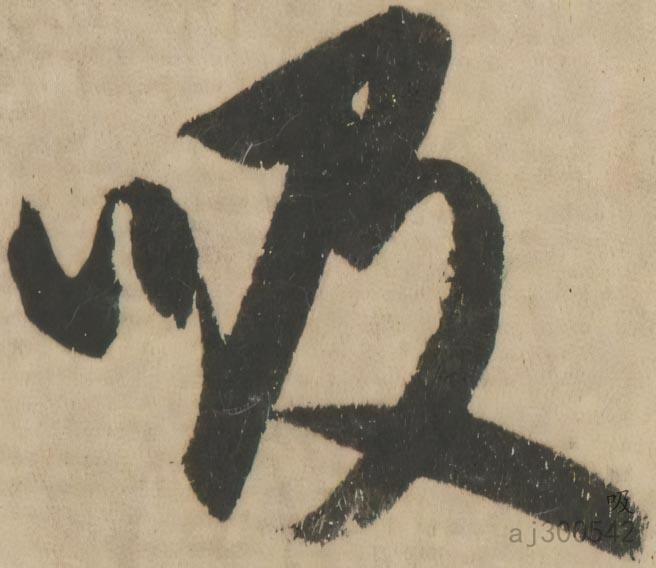 吸
吸
aj300542